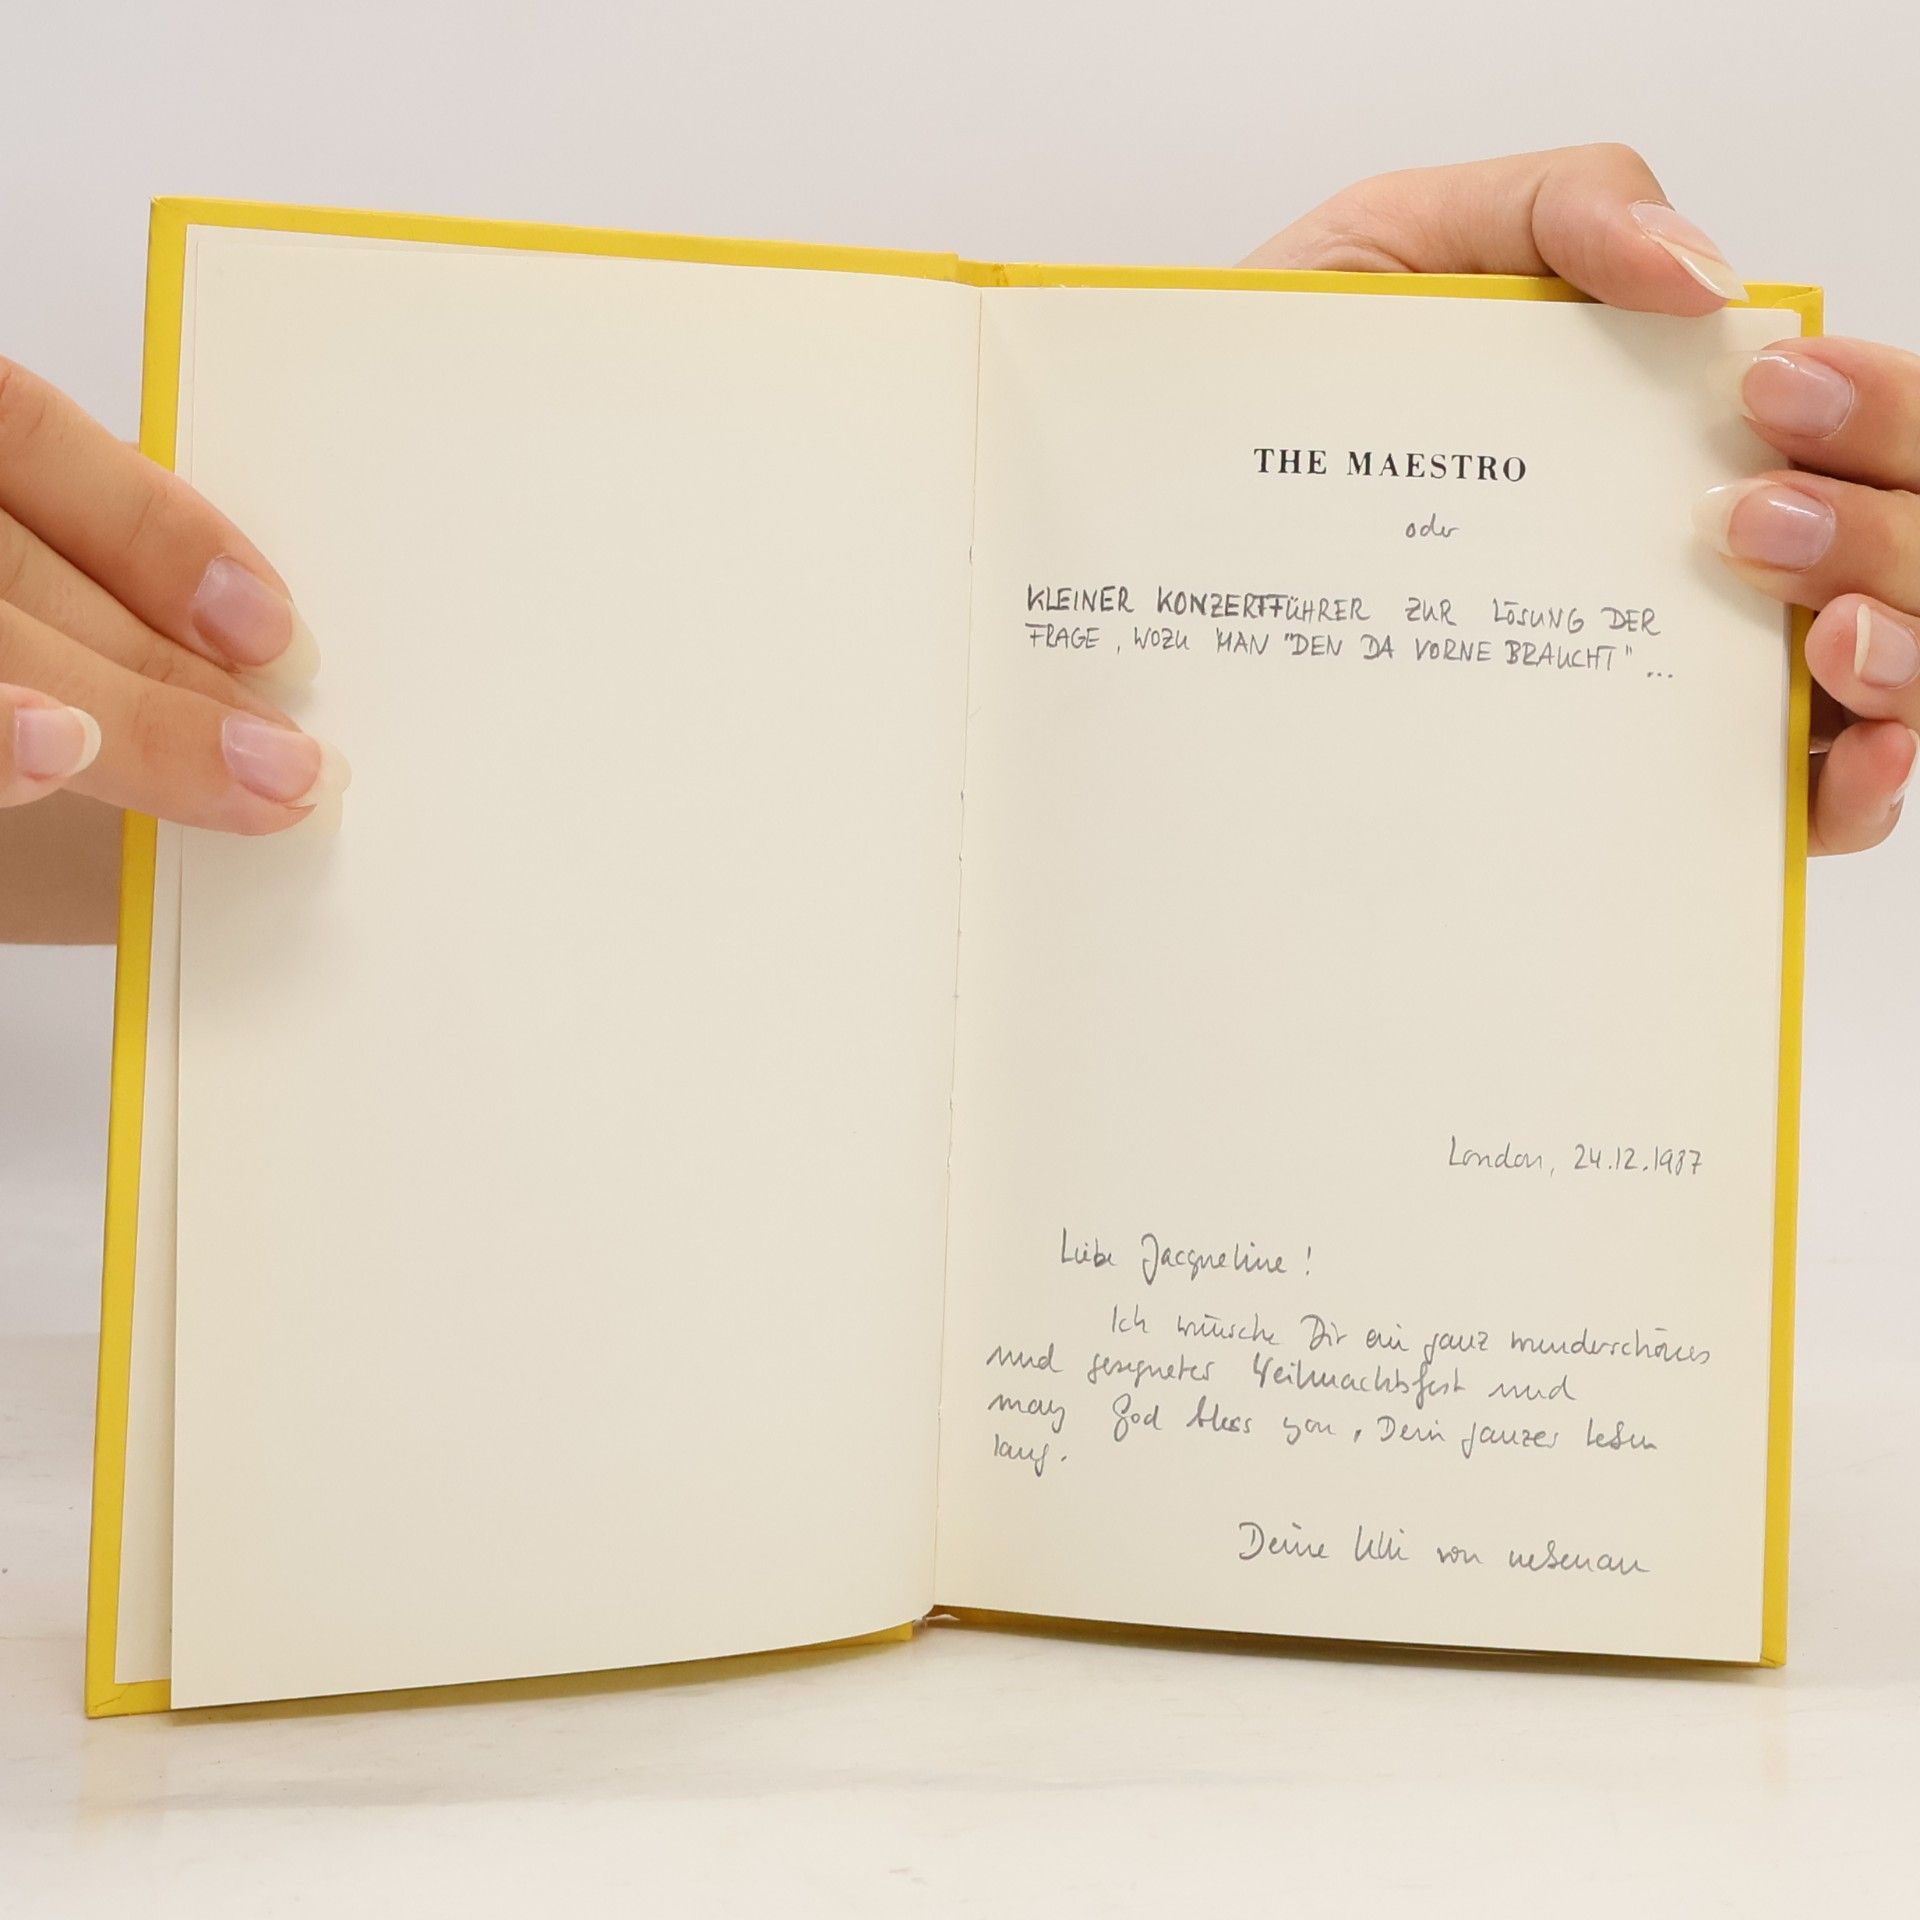 THE MAESTRO
oder
KLEINER KONZERTFÜHRER ZUR LÖSUNG DER
FRAGE, WOZU MAN "DEN DA VORNE BRAUCHT" ...
London, 24.12.1987
Liebe Jacqueline!
Ich wünsche Dir ein ganz wunderschönes
und gesegnetes Weihnachtsfest und
may God bless you, Dein ganzes Leben
lang.
Deine Ulli von nebenan